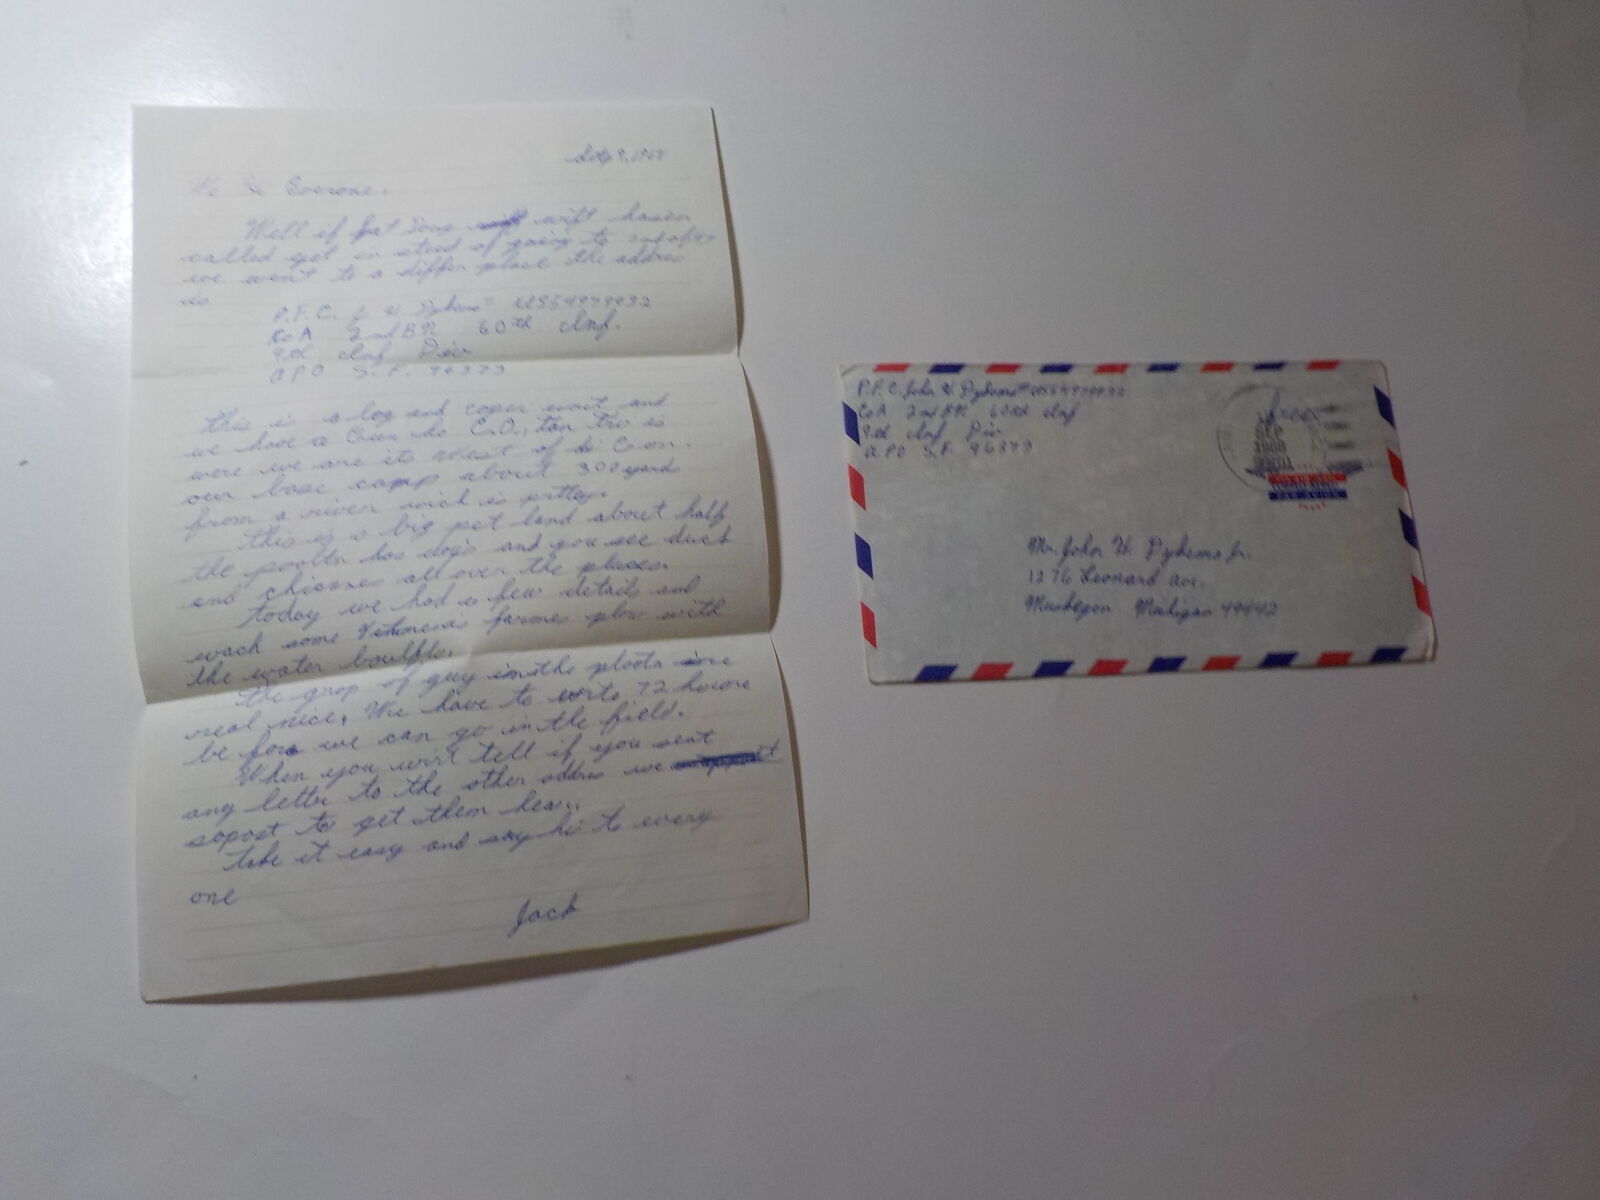 Sep 9, 1968
Hi Everone.
Well if Pat Dous wift haven
called yet in sted of going to
we went to a differ place the addres
is
P.F.C. J H. Dykema US54979932
Co A 2nd BN 60th Inf.
9th Inf Div
APO S.F. 96373
this is a leg and coper unit and
we have a C.O., tan tru is
were we are its West of
our base camp about 300 yards
from a river wich is prttey.
This is a big pet land about half
the pooltn has dogs and you see duck
and chicones all over the places.
Today we had a few details and
wach some Vetnmeas farmes plow with
the water bouffle.
The grop of guy in the plootn are
real nice. We have to wite 72 houre
be fore we can go in the field.
When you writ tell if you sent
any letter to the other addres we
sopost to get them hear.
Take it easy and say hi to every
one
Jack
P.F.C. John H. Dykema US54979932
Co A 2nd BN 60th Inf
9th Inf Div
APO S.F. 96373
Free
SEP
1968
PAR AVION
Mr. John H. Dykema Jr.
1276 Leonard Ave.
Muskegon Michigan 49442